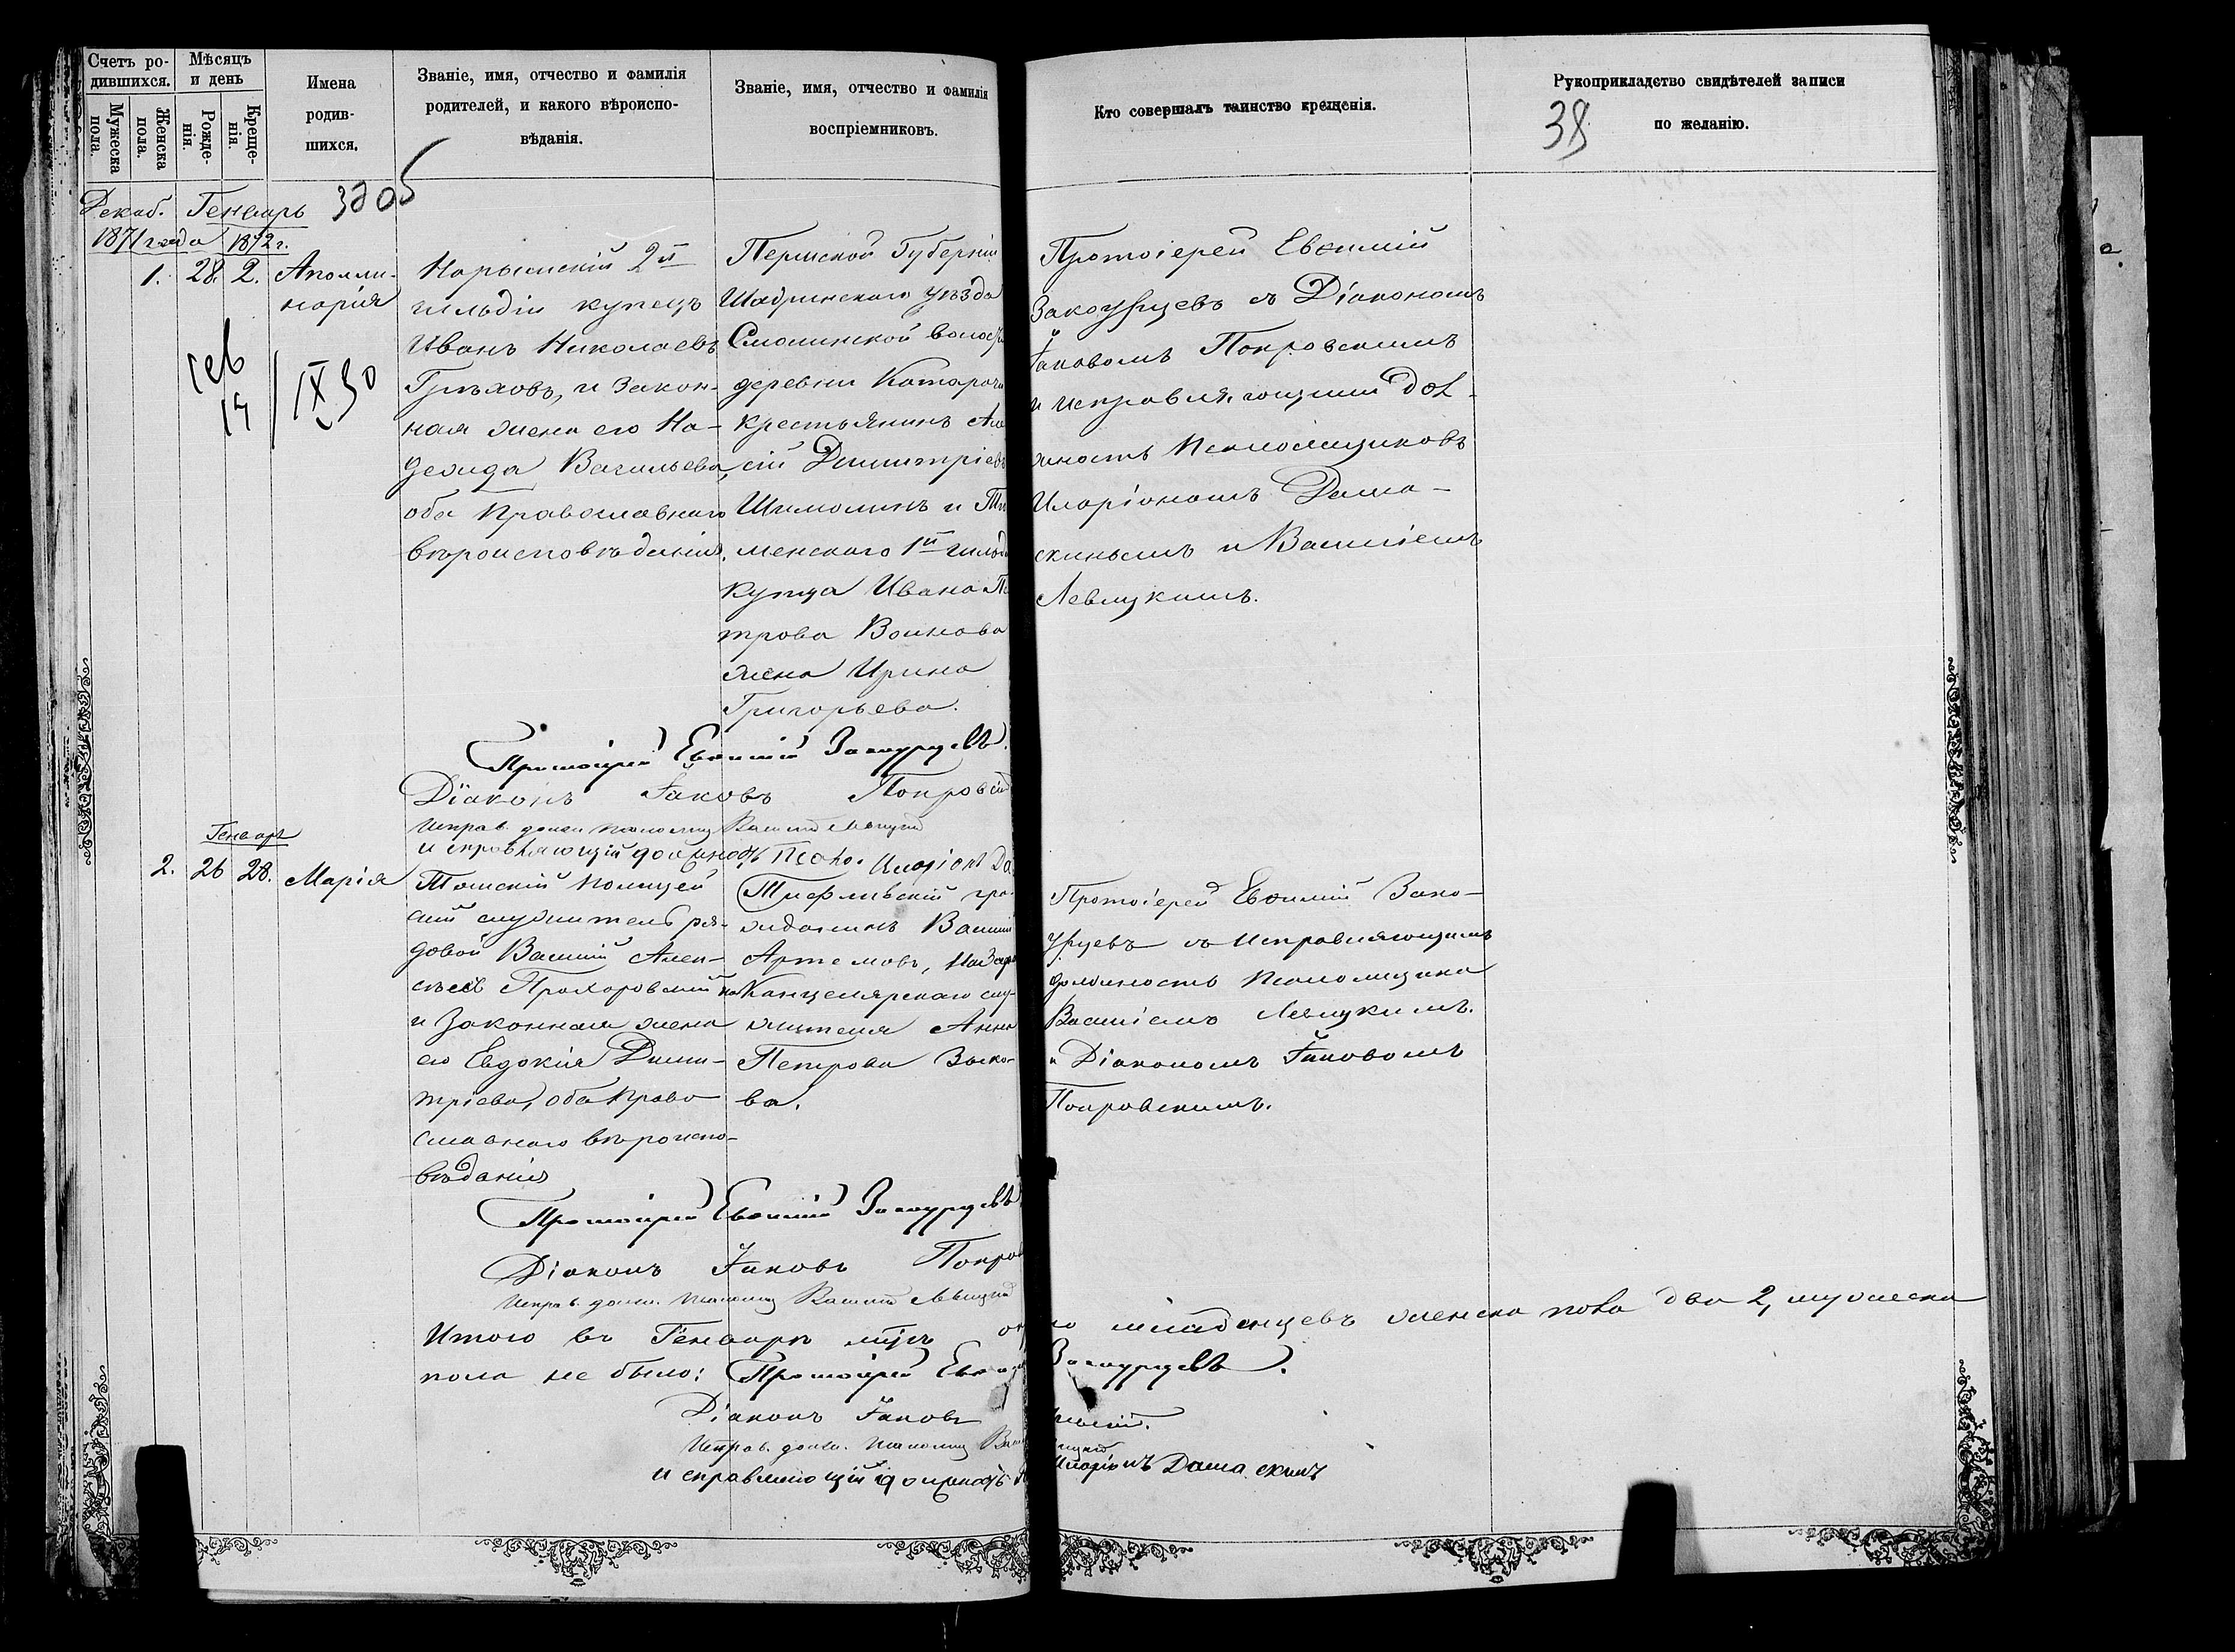 Счетъ ро-
дившихся.
Мѣсяцъ
и день
Мужеска
пола.
Женска
пола.
Рожде-
нія.
Креще-
нія.
Имена
родив-
шихся.
Званіе, имя, отчество и фамилія
родителей, и какого вѣроиспо-
вѣданія.
Званіе, имя, отчество и фамилія
воспріемниковъ.
Кто совершалъ таинство крещенія.
Рукоприкладство свидѣтелей записи
по желанію.
38
Декаб. Генварь
1871 года 1872 г.
1. 28. 2. Аполли-
нарія
Нарымскій 2й
гильдіи купецъ
Иванъ Николаевъ
Грѣховъ, и закон-
ная жена его На-
дежда Васильева,
оба Православнаго
вѣроисповѣданія.
Пермской Губерніи
Шадринскаго уѣзда
Смолинской волос
деревни
крестьянинъ Але
сій Димитріевъ
и Тю
менскаго 1й гильд
купца Ивана Пе
трова Воинова
жена Ирина
Григорьева.
Протоіерей Евѳимій
Закоурцевъ съ Діакономъ
Іаковомъ Покровскимъ
и исправляющими дол-
жность Псаломщиковъ
Иларіономъ Дама-
скинымъ и Василіемъ
Левицкимъ.
Протоіерей Евѳимій Закоурцевъ.
Діаконъ Іаковъ Покровскій
Исправ. долж. псаломщ Василій Левицкій
исправляющій должность Псало. Иларіонъ Да
Генварь
2. 26 28. Марія
Томскій полицей
скій служитель ря-
довой Василій Алек-
сѣевъ Прохоровскій
и законная жена
его Евдокія Дими-
тріева, оба Право
славнаго вѣроиспо-
вѣданія
Тифлисскій гра-
жданинъ Василій
Артемовъ,
Канцелярскаго слу-
жителя Анна
Петрова Зыко-
ва.
Протоіерей Евѳимій Зако-
урцевъ съ Исправляющимъ
должность Псаломщика
Василіемъ Левицкимъ.
и Діакономъ Іаковомъ
Покровскимъ.
Протоіерей Евѳимій Закоурцевъ
Діаконъ Іаковъ Покров
Исправ. долж. псаломщ Василій Левицкій
Итого въ Генварѣ мцѣ младенцевъ женска пола два 2, мужеска
пола не было: Протоіерей Евѳимій Закоурцевъ.
Діаконъ Іаковъ
Исправ. долж. псаломщ
исправляющій должность Иларіонъ Дамаскинъ